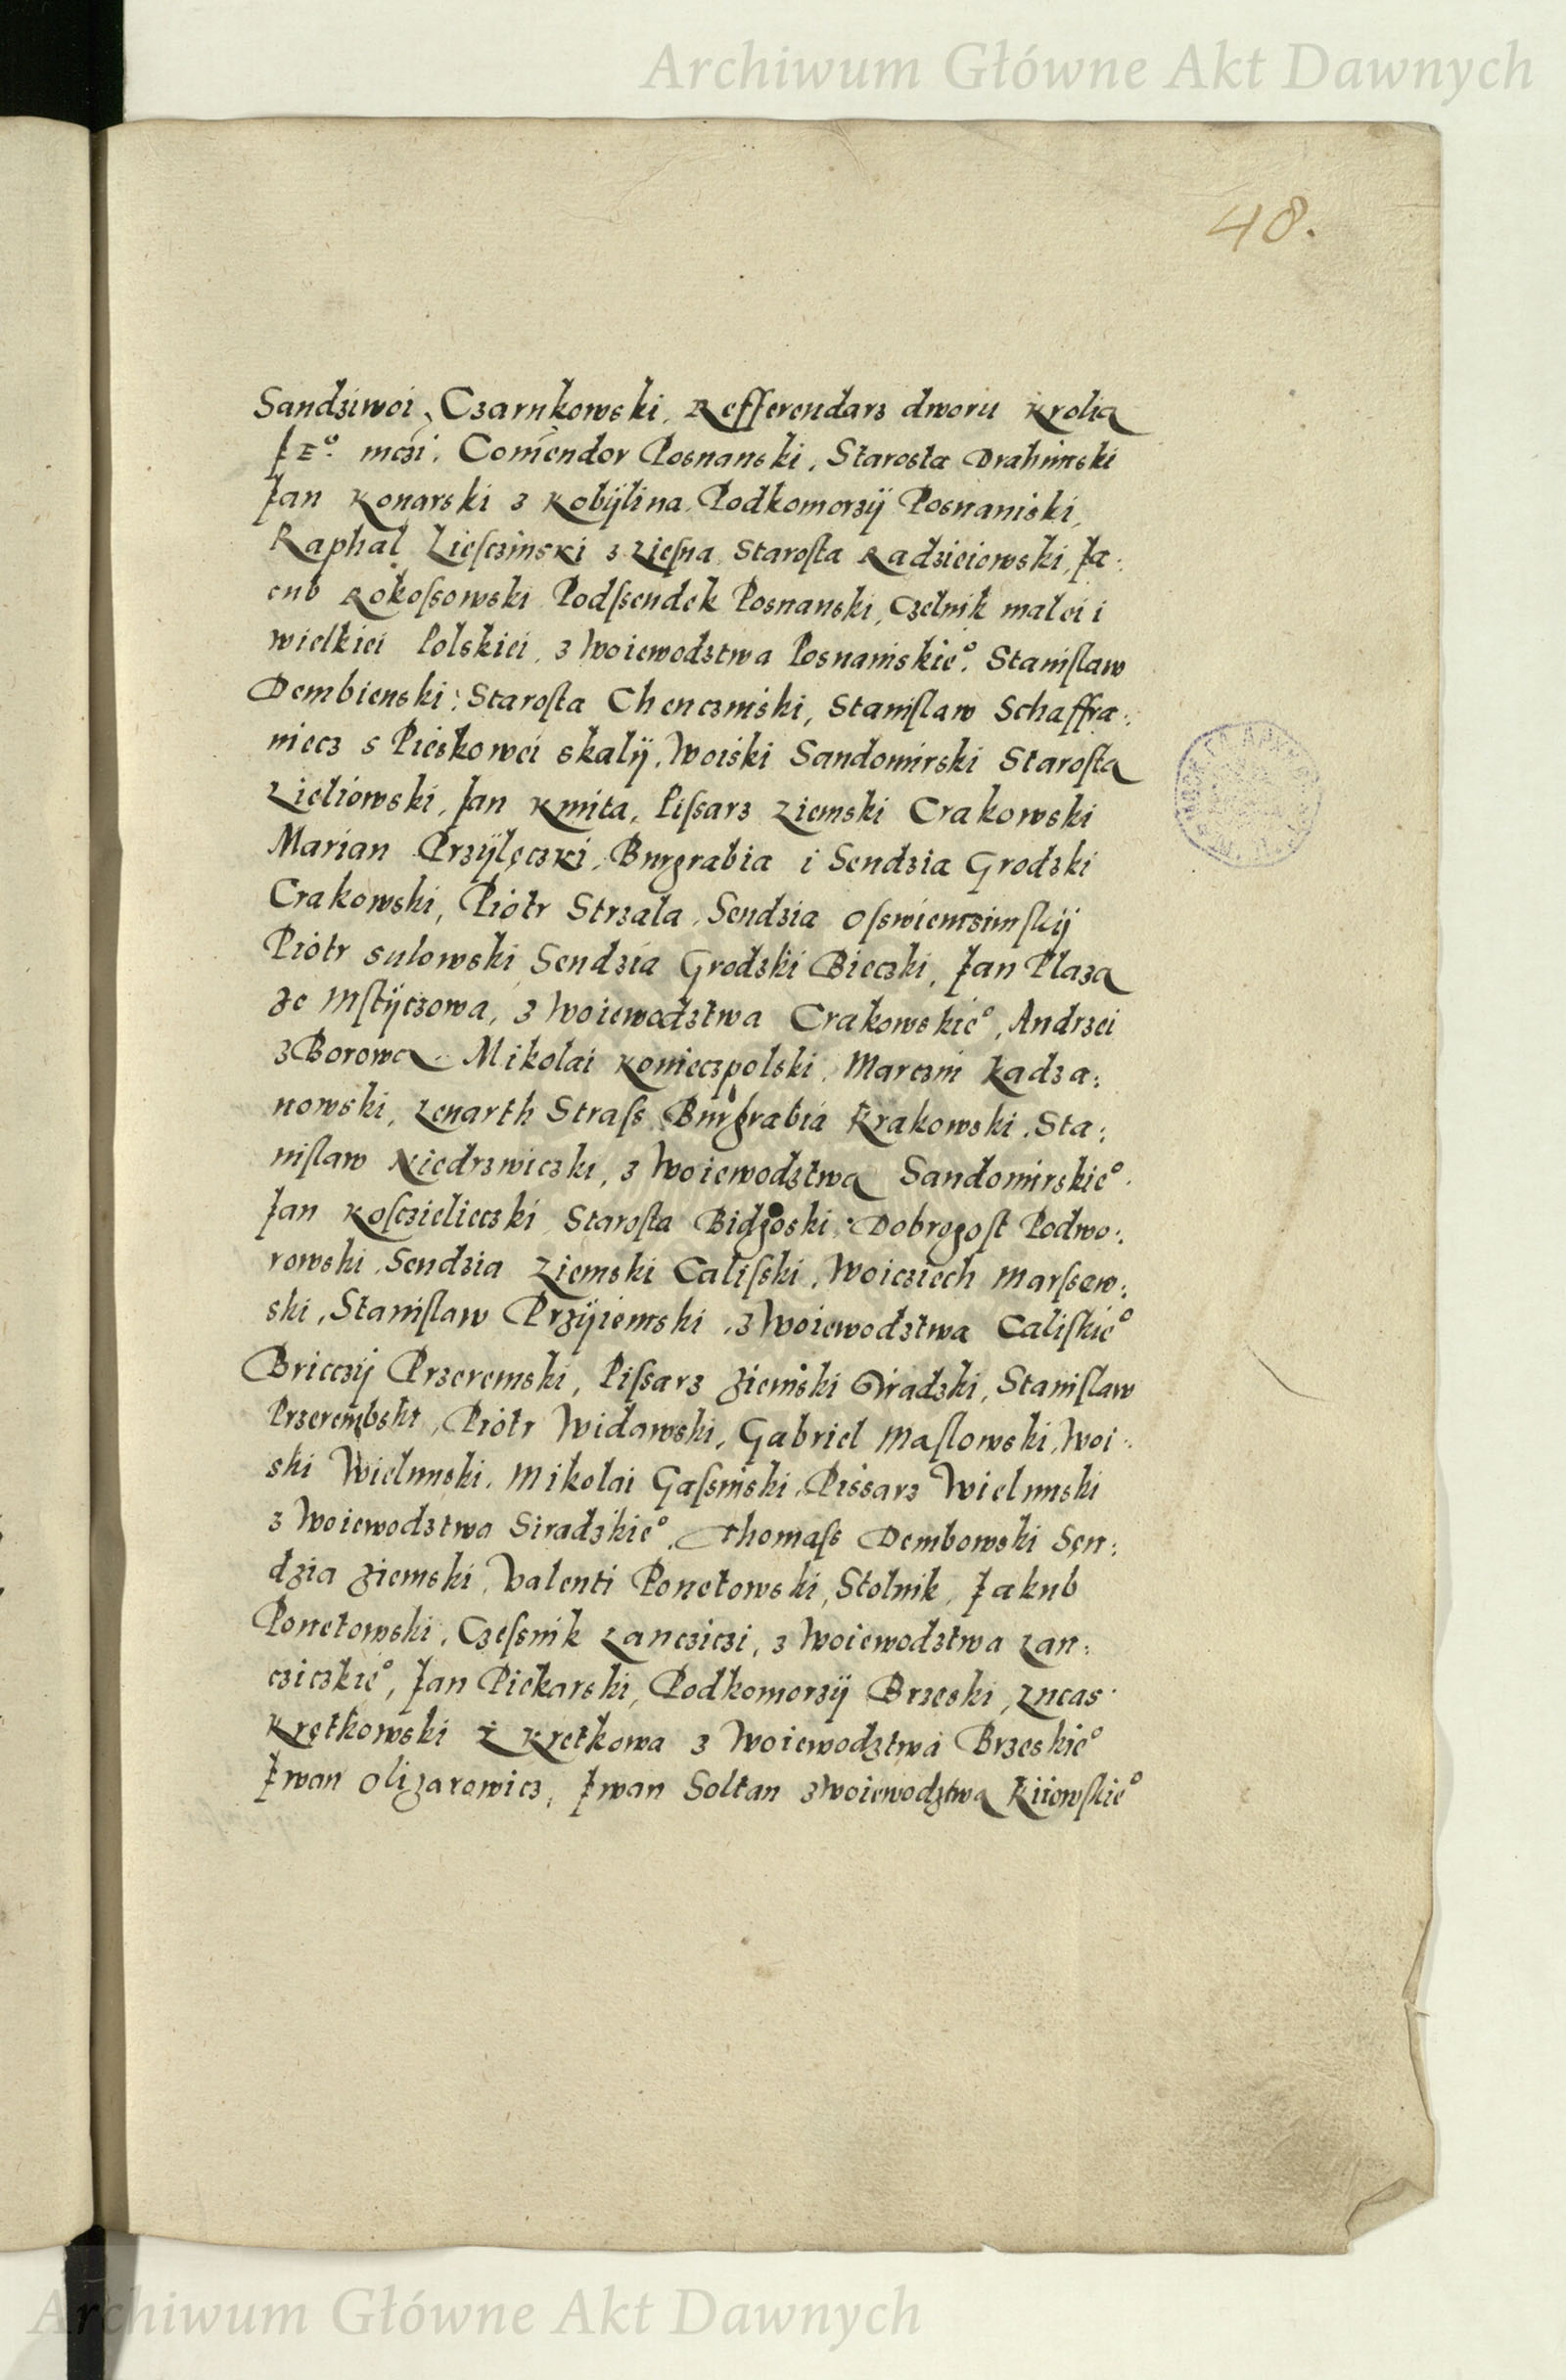 Archiwum Główne Akt Dawnych
48.
Sandziwoi, Czarnkowski, Refferendarz dworu Krolia
JEº. mczi. Comendor Posnanski, Starosta Drahimski
Jan Konarski z Kobÿlina Podkomorzÿ Posnanski,
Raphal Lieſczinski z Lieſna Staroſta Radzieiowski, Ja:
cub Rokoſsowski Podſsendek Posnanski, Czelnik malei i
wielkiei Polskiei, z Woiewodztwa Posnanskieº. Staniſlaw
Dembienski: Staroſta Chenczinski, Staniſlaw Schaffra:
niecz s Pieskowei skalÿ, Woiski Sandomirski Staroſta
Lieliowski, Jan Kmita, Piſsarz Ziemski Crakowski
Marian Przÿlęczki, Burgrabia i Sendzia Grodzki
Crakowski, Piotr Strzala, Sendzia Oſswiemczimſkÿ
Piotr Sulowski Sendzia Grodzki Bieczki, Jan Plaza
ze Mſtÿczowa, z Woiewodztwa Crakowskieº, Andrzei
z Borowa Mikolai Konieczpolski, Marczin Kadza:
nowski, Lenarth Straſs Burgrabia Krakowski, Sta:
niſlaw Niedrzwiczki, z Woiewodztwa Sandomirskieº.
Jan Koſczielieczki Staroſta Bidgoski: Dobrogoſt Podwo:
rowski Sendzia Ziemski Caliſski, Woicziech Marſsew:
ski, Staniſlaw Przÿiemski, z Woiewodztwa Caliſkieº
Briczÿ Przeremski, Piſsarz Ziemski Siradzki, Staniſlaw
Przerembski, Piotr Widawski, Gabriel Maſlowski, Woi:
ski Wielunski, Mikolai Gaſsinski, Pissarz Wielunski
z Woiewodztwa Siradzkieº. Thomaſs Dembowski Sen:
dzia Ziemski, Valenti Ponetowski, Stolnik, Jakub
Ponetowski, Czeſsnik Lancziczi, z Woiewodztwa Lan:
cziczkieº, Jan Piekarski, Podkomorzÿ Brzeski, Lucas
Krętkowski z Kretkowa z Woiewodztwa Brzeskieº
Jwan Olizarowicz, Jwan Soltan z Woiewodztwa Kiiowſkieº
Archiwum Główne Akt Dawnych